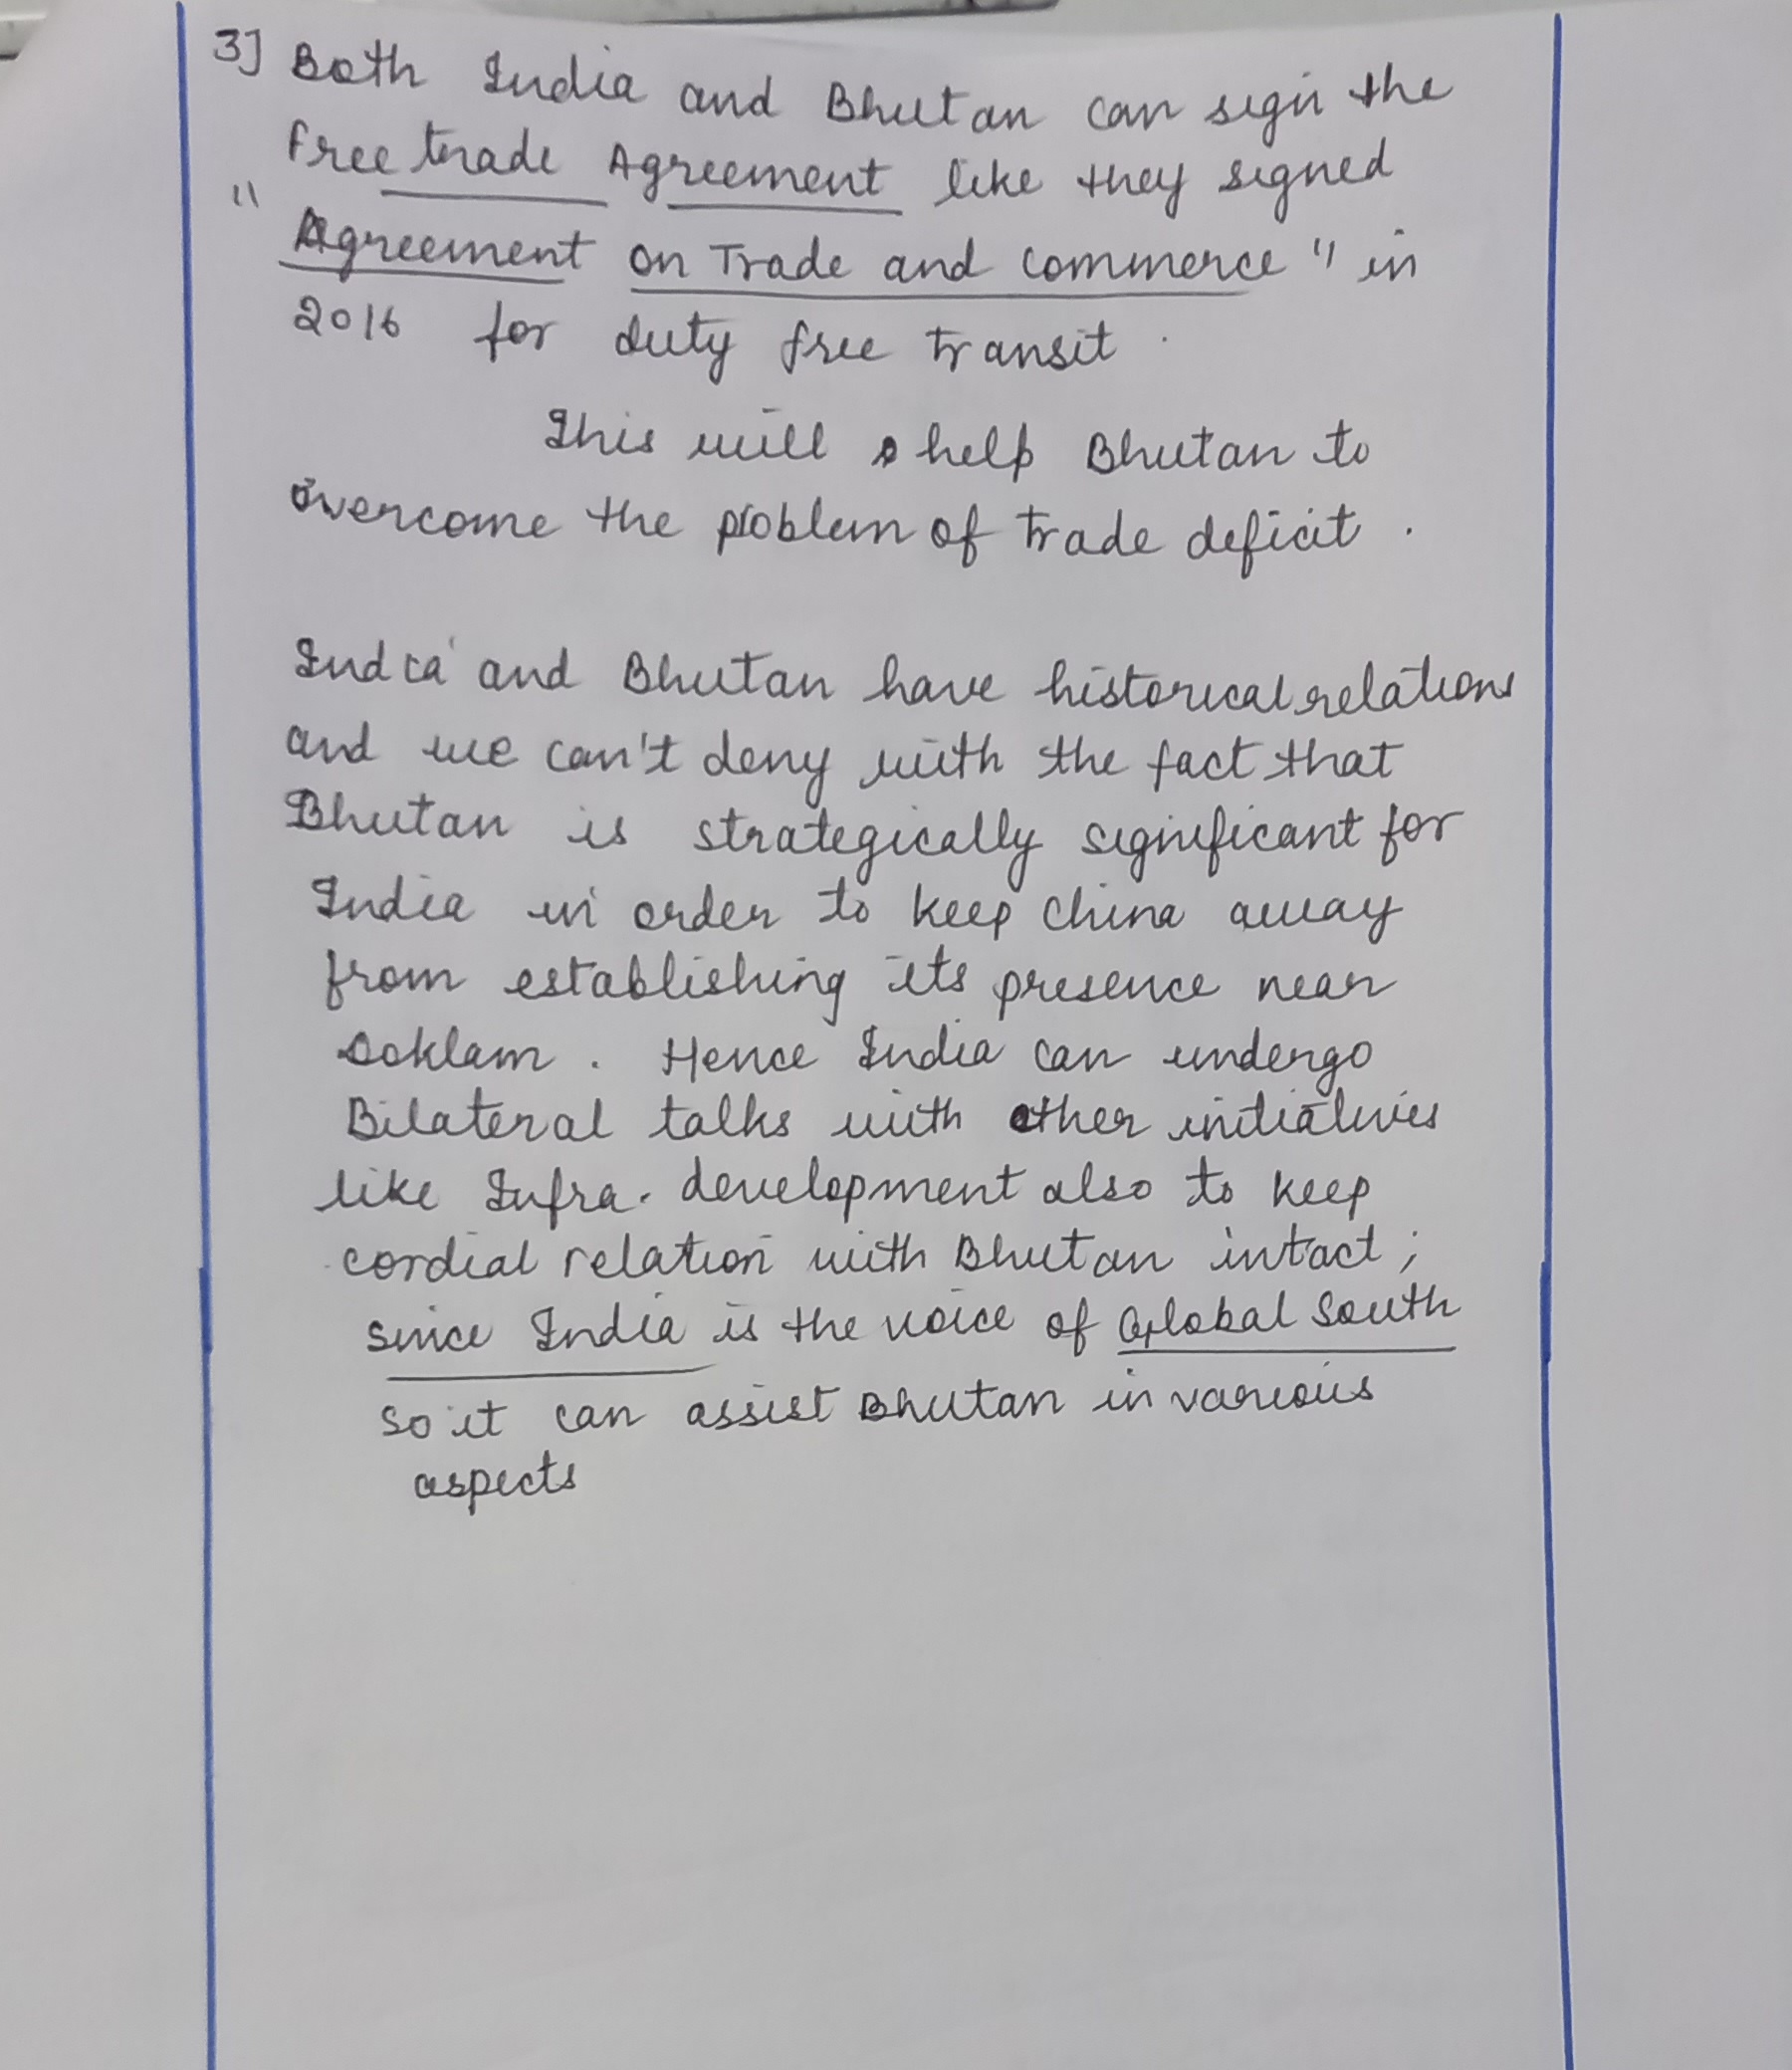 3] Both India and Bhutan can sign the
free trade Agreement like they signed
" Agreement on Trade and commerce " in
2016 for duty free transit.
This will help Bhutan to
overcome the problem of trade deficit.
India and Bhutan have historical relations
and we can't deny with the fact that
Bhutan is strategically significant for
India in order to keep China away
from establishing its presence near
Doklam. Hence India can undergo
Bilateral talks with other initiatives
like Infra. development also to keep
cordial relation with Bhutan intact;
since India is the voice of Global South
so it can assist Bhutan in various
aspects